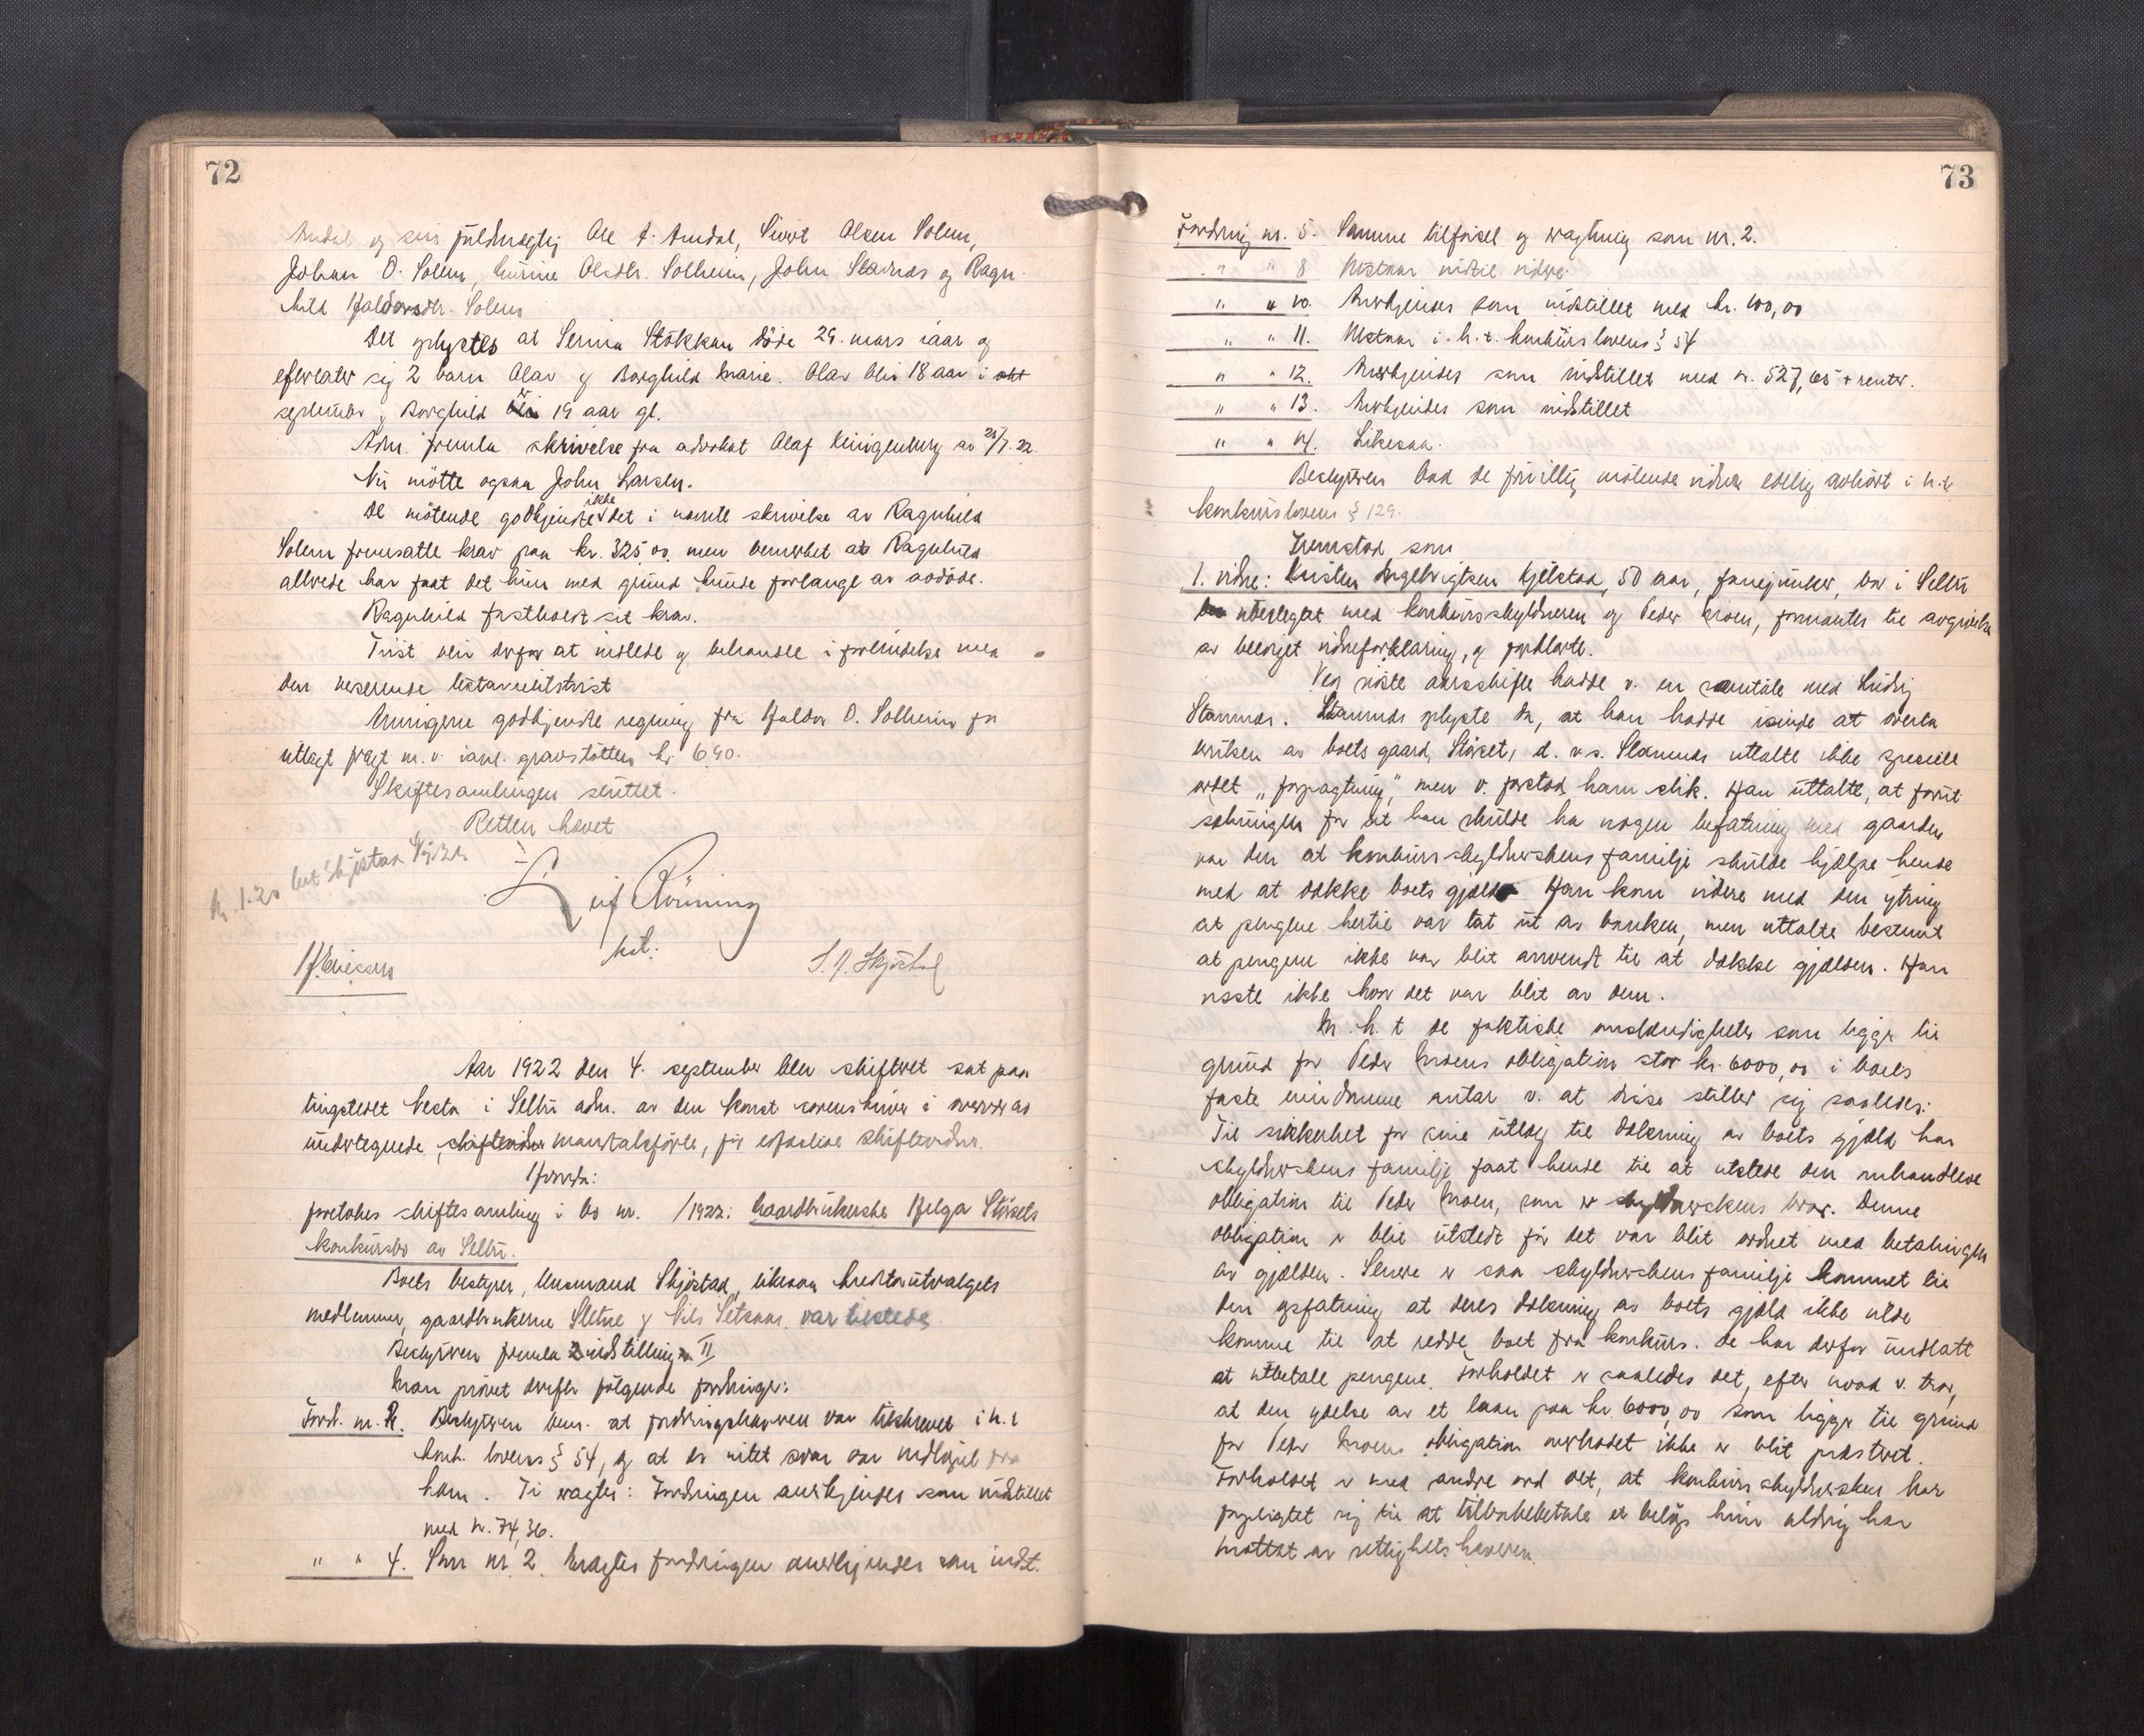 72
og sin fuldmægtig Ole A. Amdal, Sivert Olsen Solem,
Johan O. Solem, Olsdtr. Solheim, John Stavnås og Ragn-
hild Haldorsdtr. Solem
Det oplystes at Serina Stökkan döde 29. mars iaar og
efterlater sig 2 barn Olav og Borghild Marie. Olav blir 18 aar i okt
september og Borghild er 19 aar gl.
Adm. fremla skrivelse fra advokat Olaf Klingenberg av 28/7. 22.
Nu mötte ogsaa John Larsen.
De mötende godkjendte ikke det i nævnte skrivelse av Ragnhild
Solem fremsatte krav paa kr. 325,00 men bemerket at Ragnhild
allerede har faat det hun med grund kunde forlange av avdöde.
Ragnhild fastholdt sit krav.
Tvist blir derfor at indlede og behandle i forbindelse med
den verserende testamentstvist
Arvingene godkjendte regning fra Haldor O. Solheim for
utlagt fragt m.v. ianl. gravstötten kr 6,90.
Skiftesamlingen sluttet.
Retten hævet
Leif Rönning
kst.
kr. 1.20 bet Skjöstad
H. Ericssen
S. J. Skjöstad
Aar 1922 den 4. september blev skifteret sat paa
tingstedet Nesta i Selbu adm. av den konst sorenskriver i overvær av
undertegnede skiftevidner mantalsförte, för edfæstede skiftevidner.
Hvorda:
foretokes skiftesamling i bo nr. /1922: Gaardbrukerske Helga Stösets
konkursbo av Selbu.
Boets bestyrer, lensmand Skjöstad, likesaa kreditorutvalgets
medlemmer, gaardbrukerne Sletne og Nils Setsaas var tilstede
Bestyreren fremla 2 indstilling II
Man prövet derefter fölgende fordringer:
Ford. nr. 2. Bestyreren bem. at fordringshaveren var tilskrevet i h.t
konk. lovens § 54, og at der intet svar var indlöpet fra
ham. Ti vragtes: Fordringen anerkjendes som indstillet
med kr. 74,36.
" " 4. Som nr. 2. Vragtes fordringen anerkjendes som indst.
73
Fordring nr. 5. Samme tilförsel og vragtning som nr. 2.
" " 8 Utstaar indtil videre
" " 10. Anerkjendes som indstillet med kr. 100,00
" " 11. Utstaar i. h. t. konkurslovens § 54
" " 12. Anerkjendes som indstillet med kr. 527,65 + renter.
" " 13. Anerkjendes som indstillet
" " 14. Likesaa.
Bestyreren bad de frivillig mötende vidner edelig avhört i h.t.
konkurslovens § 129.
Fremstod som
1. vidne: Kristen Ingebrigtsen Kjelstad, 50 aar, fanejunker, bor i Selbu
ubeslegtet med konkursskyldneren og Peder Moen, formantes til avgivelse
av beediget vidneforklaring, og forklarte.
Ved siste aarsskifte hadde v. en samtale med Ludvig
Stamnes. Stamnes oplyste da, at han hadde isinde at overta
bruken av boets gaard, Stöset, d. v. s. Stamnes uttalte ikke specielt
ordet „forpagtning", men v. forstod ham slik. Han uttalte, at forut-
sætningen for at han skulde ha nogen befatning med gaarden
var den at konkursskyldnerskens familje skulde hjælpe hende
med at dække boets gjæld. Han kom videre med den ytring
at pengene hertil var tat ut av banken, men uttalte bestemt
at pengene ikke var blit anvendt til at dække gjælden. Han
visste ikke hvor det var blit av dem.
M. h. t de faktiske omstændigheter som ligger til
grund for Peder Moens obligation stor kr. 6000,00 i boets
faste eiendomme antar v. at disse stiller sig saaledes:
Til sikkerhet for sine utlæg til dækning av boets gjæld har
skyldnerskens familje faat hende til at utstede den omhandlede
obligation til Peder Moen, som er skyldnerskens bror. Denne
obligation er blit utstedt för det var blit ordnet med betalingen
av gjælden. Senere er saa skyldnerskens familje kommet til
den opfatning at deres dækning av boets gjæld ikke vilde
komme til at redde boet fra konkurs. De har derfor undlatt
at utbetale pengene. Forholdet er saaledes det, efter hvad v. tror,
at den ydelse av et laan paa kr. 6000,00 som ligger til grund
for Peder Moens obligation overhodet ikke er blit præstert.
Forholdet er med andre ord det, at konkursskyldnersken har
forpligtet sig til at tilbakebetale et belöp hun aldrig har
mottat av rettighetshaveren.